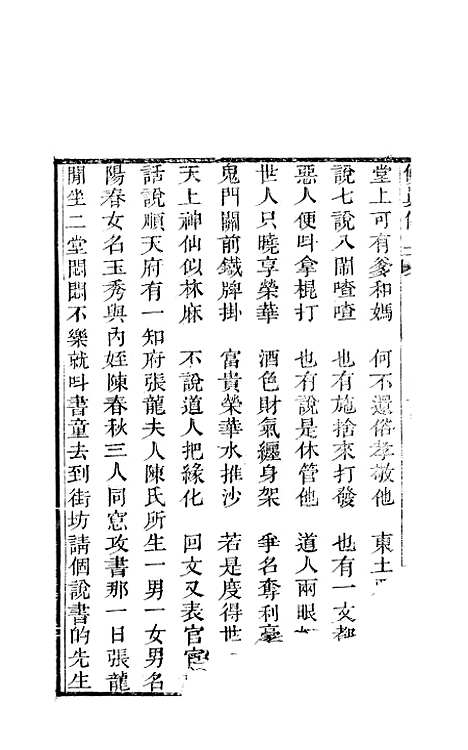 堂上可有爹和媽　何不還俗孝敬他　東土
說七說八鬧喳喳　也有施捨來打發　也有一文都
惡人便呌拿棍打　也有說是休管他　道人兩眼
世人只曉享榮華　酒色財氣纏身架　爭名奪利
鬼門關前鐵牌掛　富貴榮華水推沙　若是度得世
天上神仙似林麻　不說道人把緣化　回文又表官
話說順天府有一知府張龍夫人陳氏所生一男一女男名
陽春女名玉秀與內姪陳春秋三人同窓攻書那一日張龍
閒坐二堂悶悶不樂就呌書童去到街坊請個說書的先生